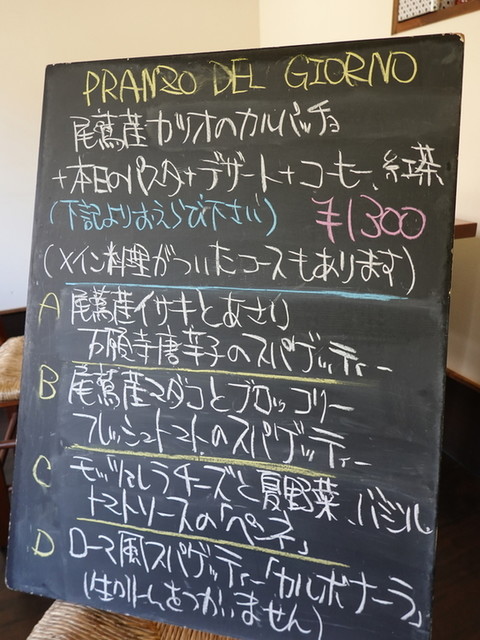 PRANZO DEL GIORNO
尾鷲産カツオのカルパッチョ
+本日のパスタ+デザート+コーヒー、紅茶
(下記よりおえらび下さい) ¥1300
(メイン料理がついたコースもあります)
A 尾鷲産イサキとあさり
万願寺唐辛子のスパゲッティー
B 尾鷲産マダコとブロッコリー
フレッシュトマトのスパゲッティー
C モッツァレラチーズと夏野菜、バジル
トマトソースの「ペンネ」
D ローマ風スパゲッティー「カルボナーラ」
(生クリームをつかいません)